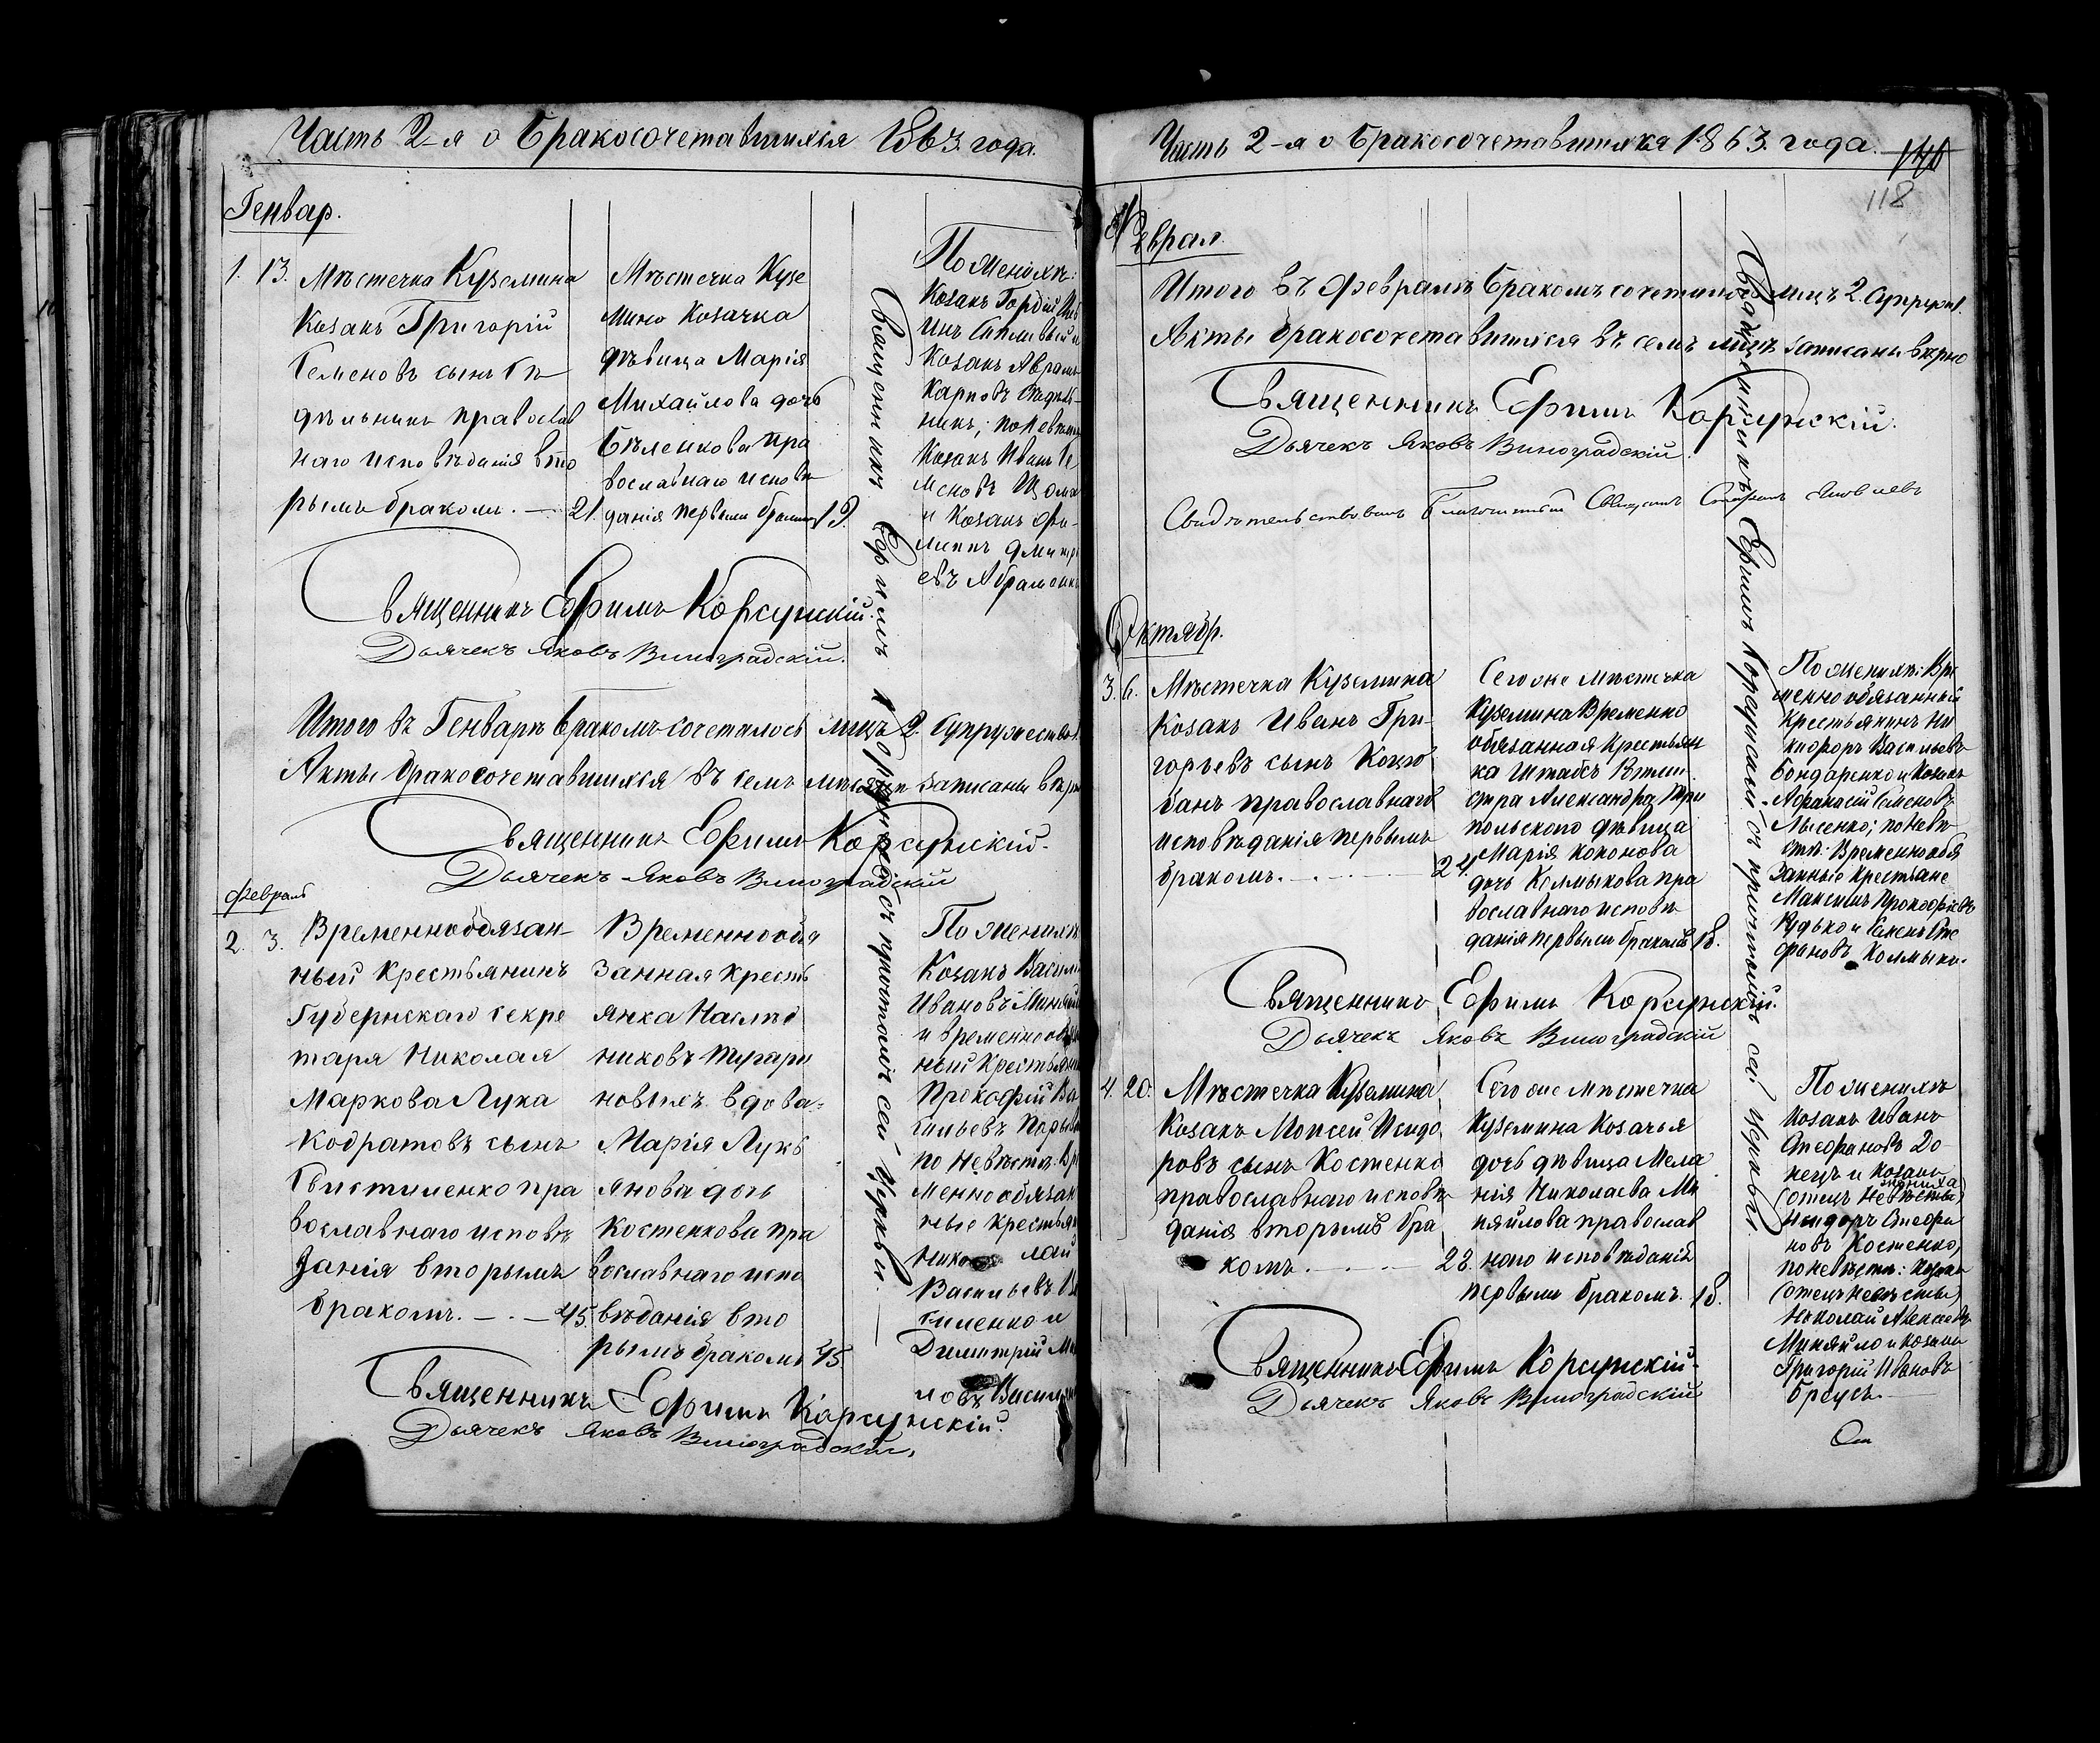 Часть 2-я о Бракосочетавшихся 1863. года.
Генвар.
1. 13. Мѣстечка Куземина
Козакъ Григорій
Семеновъ сынъ Бѣ
дѣльникъ православ
наго исповѣданія вто
рымъ бракомъ. — 21.
Мѣстечка Кузе
мина Козачка
дѣвица Марія
Михайлова дочь
Бѣленкова пра
вославнаго исповѣ
данія первымъ бракомъ 19.
Священникъ Ефимъ Корсунскій съ причтомъ сей Церкви. —
По женихѣ:
Козакъ Гордій
Козакъ Аврамъ
Карповъ
никъ; по невѣстѣ
Козакъ Иванъ Се
меновъ
и Козакъ Фи-
липпъ Дмитрі
евъ Абраменко
Священникъ Ефимъ Корсунскій.
Дьячекъ Яковъ Виноградскій.
Итого въ Генварѣ бракомъ сочеталось лицъ 2. Супружество 1.
Акты бракосочетавшихся въ семъ мѣсяцѣ записаны вѣрно
Священникъ Ефимъ Корсунскій.
Дьячекъ Яковъ Виноградскій
Февраль
2. 3. Временнообязан-
ный Крестьянинъ
Губернскаго секре
таря Николая
Маркова Лука
Кодратовъ сынъ
пра
вославнаго исповѣ
данія вторымъ
бракомъ. — . — 45.
Временнообя
занная кресть
янка Наслѣд
никовъ
новыхъ вдова
Марія Лукь
янова дочь
Костенкова пра
вославнаго испо
вѣданія вто
рымъ бракомъ 45.
По женихѣ
Козакъ Василій
Ивановъ
и временнообязан
ный Крестьянинъ
Прокофій Ва
сильевъ
по невѣстѣ. Вре
меннообязан
ные крестьяне
Николай
Васильевъ
и
Димитрій
Священникъ Ефимъ Корсунскій.
Дьячекъ Яковъ Виноградскій.
Часть 2-я о Бракосочетавшихся 1863. года.
118
Феврал.
Итого въ Февралѣ бракомъ сочеталось лицъ 2. Супруж. 1.
Акты бракосочетавшихся въ семъ мѣсяцѣ записаны вѣрно
Священникъ Ефимъ Корсунскій.
Дьячекъ Яковъ Виноградскій.
Свидѣтельствовалъ Благочинный Священникъ Яковлевъ
Октябр.
3. 6. Мѣстечка Куземина
Козакъ Иванъ Гри-
горьевъ сынъ Коцю
банъ православнаго
исповѣданія первымъ
бракомъ. — 24.
Сего же мѣстечка
Куземина Временно
обязанная Крестьян
ка Штабсъ Ротми
стра Александра Три
польскаго дѣвица
Марія Кононова
дочь Колмыкова пра
вославнаго исповѣ
данія первымъ бракомъ 18.
Священникъ Ефимъ Корсунскій съ причтомъ сей Церкви.
По женихѣ: Вре
менно обязанный
Крестьянинъ Ни
кифоръ Васильевъ
Бондаренко и Козакъ
Афанасій Семеновъ
Лысенко; по невѣ
стѣ: Временнообя
занные Крестьяне
Максимъ Прокофьевъ
Кудько и Семенъ Сте
фановъ Колмыко.
Священникъ Ефимъ Корсунскій.
Дьячекъ Яковъ Виноградскій
4. 20. Мѣстечка Куземина
Козакъ Моисей Исидо
ровъ сынъ Костенко
православнаго исповѣ
данія вторымъ бра
комъ. — 28.
Сего же мѣстечка
Куземина Козачья
дочь дѣвица Мела
нія Николаева Ми
няйлова православ
наго исповѣданія
первымъ бракомъ. 18.
По женихѣ
Козакъ Иванъ
Стефановъ До
нецъ и Козакъ
жениха
(отецъ невѣсты)
Исидоръ Стефа
новъ Костенко,
по невѣстѣ: Козакъ
(отецъ невѣсты)
Николай Алексѣевъ
Миняйло и козакъ
Григорій Ивановъ
Бреусъ. —
Священникъ Ефимъ Корсунскій.
Дьячекъ Яковъ Виноградскій
От